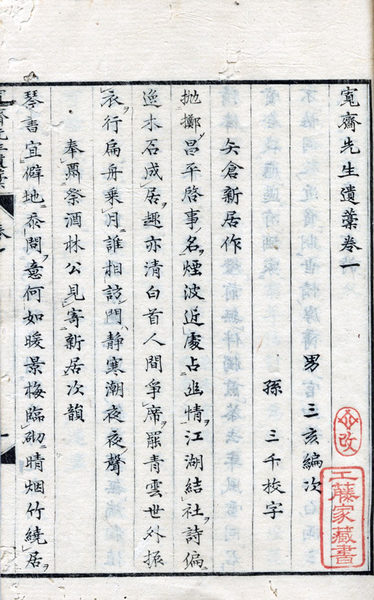 寛齋先生遺藁卷一
男三亥編次
孫三千校字
矢倉新居作
抛擲昌平啓事名煙波近處占幽情江湖結社詩偏
逸木石成居趣亦清白首人間爭席罷青雲世外振
衣行扁舟乗月誰相訪門靜寒潮夜夜聲
奉祭酒林公見寄新居次韻
琴書宜僻地忝問意何如暖景梅臨砌晴烟竹繞居
改
工藤家藏書